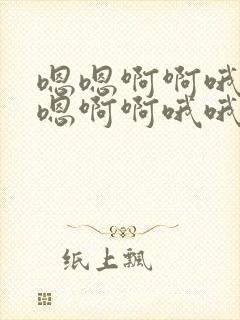 嗯嗯啊啊哦
嗯啊啊哦哦
纸上飘